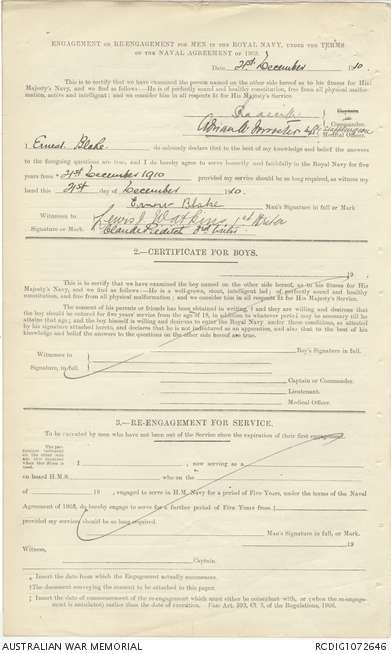 ENGAGEMENT OR RE-ENGAGEMENT FOR MEN IN THE ROYAL NAVY, UNDER THE TERMS
OF THE NAVAL AGREEMENT OF 1903.
Date, 21st December 1910.
This is to certify that we have examined the person named on the other side hereof as to his fitness for His
Majesty's Navy, and we find as follows:—He is of perfectly sound and healthy constitution, free from all physical malfor-
mation, active and intelligent; and we consider him in all respects fit for His Majesty's Service.
Captain
or
Commander.
Medical Officer.
I Ernest Blake do solemnly declare that to the best of my knowledge and belief the answers
to the foregoing questions are true, and I do hereby agree to serve honestly and faithfully in the Royal Navy for five
years from * 21st December 1910 provided my service should be so long required, as witness my
hand this 21st day of December 1910.
Ernest Blake Man's Signature in full or Mark.
Witnesses to
Signature or Mark.
2.—CERTIFICATE FOR BOYS.
19
This is to certify that we have examined the boy named on the other side hereof, as to his fitness for His
Majesty's Navy, and we find as follows:—He is a well-grown, stout, intelligent lad, of perfectly sound and healthy
constitution, and free from all physical malformation; and we consider him in all respects fit for His Majesty's Service.
The consent of his parents or friends has been obtained in writing, † and they are willing and desirous that
the boy should be entered for five years' service from the age of 18, in addition to whatever period may be necessary till he
attains that age; and the boy himself is willing and desirous to enter the Royal Navy under these conditions, as attested
by his signature attached hereto, and declares that he is not indentured as an apprentice, and also that to the best of his
knowledge and belief the answers to the questions on the other side hereof are true.
Boy's Signature in full.
Witnesses to
Signature, in full.
Captain or Commander.
Lieutenant.
Medical Officer.
3.—RE-ENGAGEMENT FOR SERVICE.
To be executed by men who have not been out of the Service since the expiration of their first engagement.
I , now serving as a
on board H.M.S. who on the
of 19 , engaged to serve in H.M. Navy for a period of Five Years, under the terms of the Naval
Agreement of 1903, do hereby engage to serve for a further period of Five Years from ‡
provided my services should be so long required.
Man's Signature in full, or Mark.
19
Witness,
Captain.
* Insert the date from which the Engagement actually commences.
† The document conveying the consent to be attached to this paper.
‡ Insert the date of commencement of re-engagement which must either be coincident with, or (when the re-engage-
ment is antedated) earlier than the date of execution. Vide Art. 393, Cl. 5, of the Regulations, 1906.
AUSTRALIAN WAR MEMORIAL
RCDIG1072646